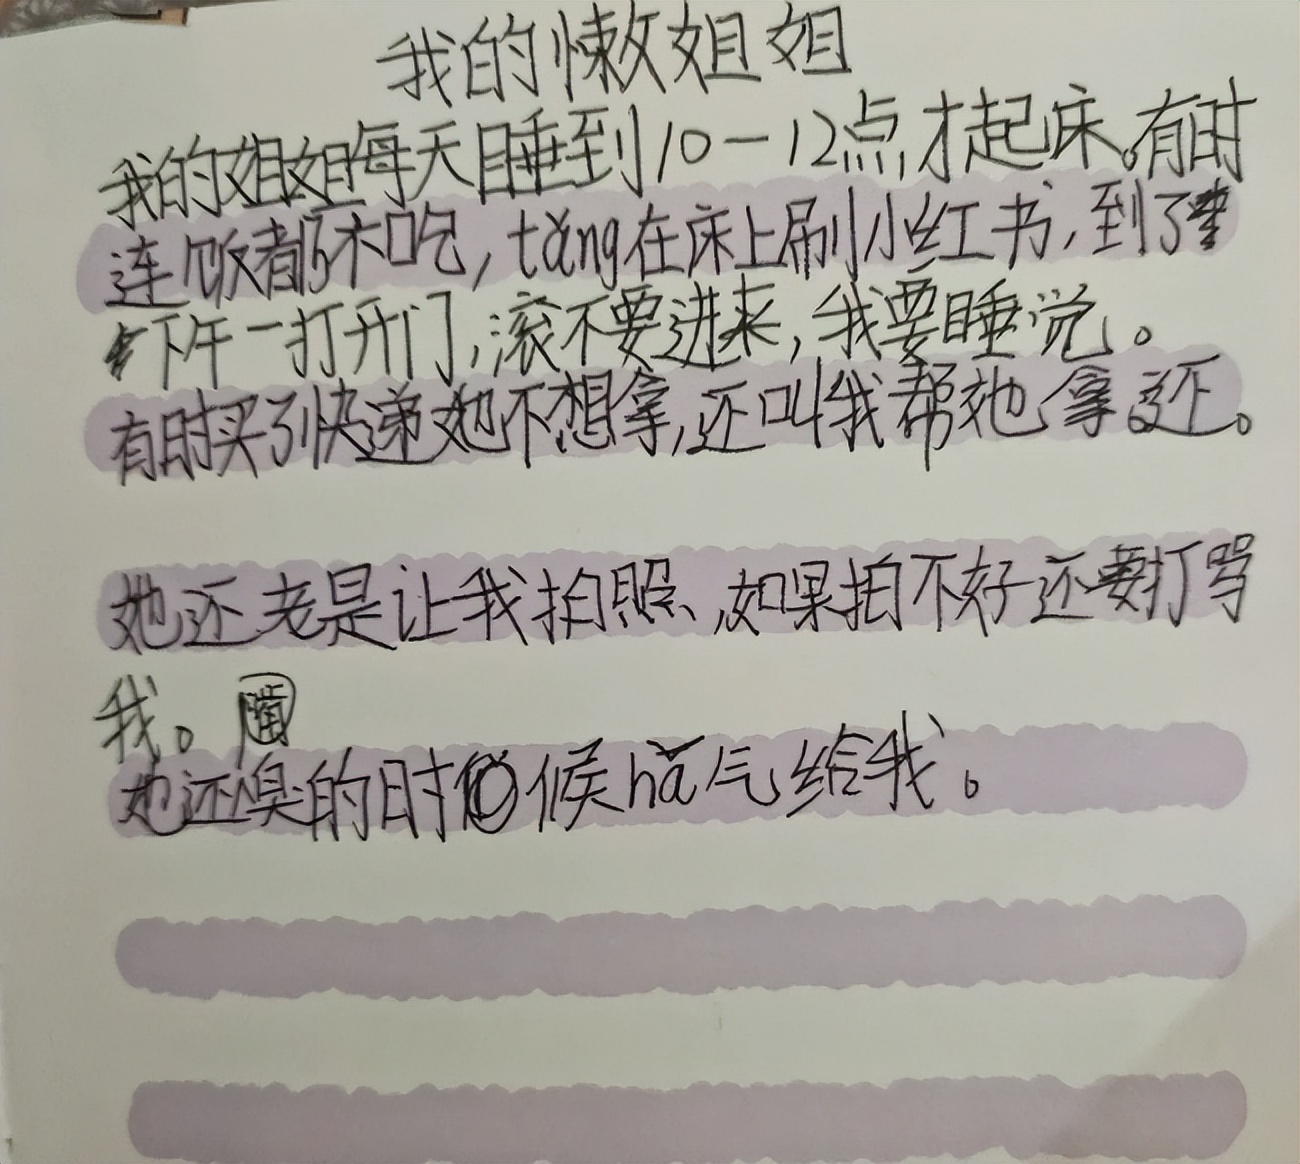 我的懒姐姐
我的姐姐每天睡到10-12点,才起床。有时
连饭都不吃,tǎng在床上刷小红书,到了
下午一打开门,滚不要进来,我要睡觉。
有时买了快递她不想拿,还叫我帮她拿还。
她还老是让我拍照、如果拍不好还要打骂
我。
她还臭的时候hǎ气给我。